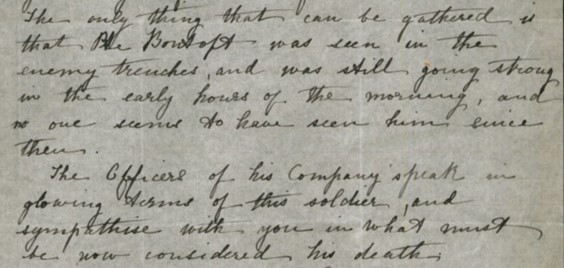 The only thing that can be gathered is
that Pte Bowtoft was seen in the
enemy trenches, and was still going strong
in the early hours of the morning, and
no one seems to have seen him since
then.
The Officers of his Company speak in
glowing terms of this soldier, and
sympathise with you in what must
be now considered his death.